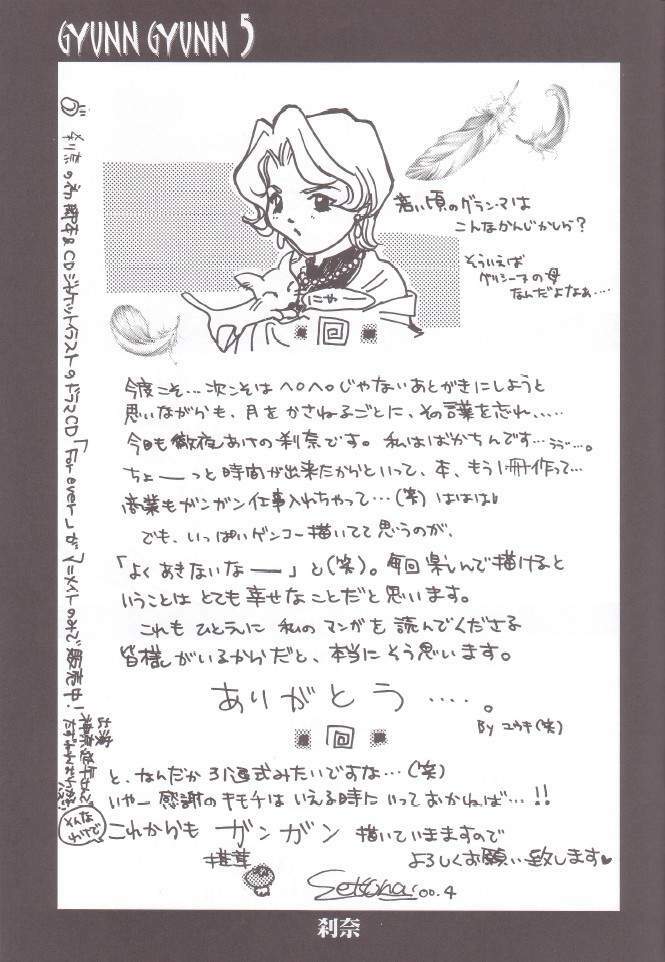 GYUNN GYUNN 5
若い頃のグランマは
こんなかんじかしら?
そういえば
グリシーヌの母
なんだよなぁ‥‥
にゃ
今度こそ…次こそはヘロヘロじゃないあとがきにしようと
思いながらも、月をかさねるごとに、その言葉を忘れ、‥‥
今日も徹夜あけの刹奈です。私はばかちんです…ううっ…。
ちょーーっと時間が出来たからといって、本、もう1冊作って…
商業もガンガン仕事入れちゃって…(笑) ははは♥
でも、いっぱいゲンコー描いてて思うのが、
「よくあきないなー」と(笑)。毎回楽しんで描けると
いうことはとても幸せなことだと思います。
これもひとえに私のマンガを読んでくださる
皆様がいるからだと、本当にそう思います。
ありがとう‥‥。
By ユウキ(笑)
と、なんだか引退式みたいですな…(笑)
いやー感謝のキモチはいえる時にいっておかねば…!!
これからもガンガン描いていきますので
よろしくお願い致します♥
椎茸
Setsuna 00.4
CDジャケットイラストのドラマCD「For ever…」がアニメイトのみで販売中!
そんな
かんじで
刹奈